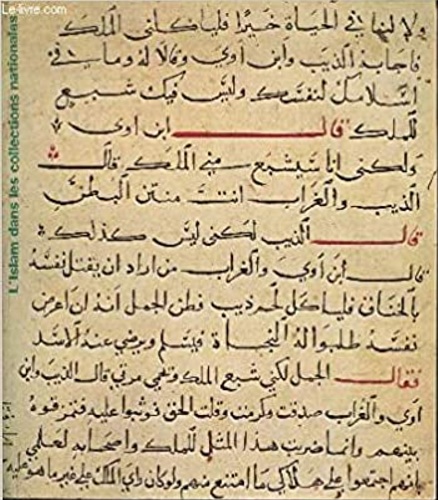 Le-livre.com
L'Islam dans les collections nationales
ولا في الحياة خيرًا فلياكلني الملك
فاجابه الذيب وابن آوي وقالا له وما في
اسلامك لنفسك وليس فيك شبع
للملك قال ابن اوى
ولكني انا سيشبع مني الملك قال
الذيب والغراب انت منتن البطن
قال الذيب لكني ليس كذلك
قال ابن آوي والغراب من اراد ان يقتل نفسه
بالخناق فلياكل لحم ذيب فظن الجمل انه ان اعرض
نفسه طلبوا له النجاة فيسلم ويرضي عنه الاسد
فقال الجمل لكني شبع الملك ولحمي مري قال الذيب وابن
اوي والغراب صدقت وكرمت وقلت الحق فوثبوا عليه فمزقوه
بينهم وانما ضربت هذا المثل للملك واصحابه لعلمي
بانهم اجتمعوا على هلاكي ما امتنع منهم ولو كان راي الملك على غير ما هو عليه